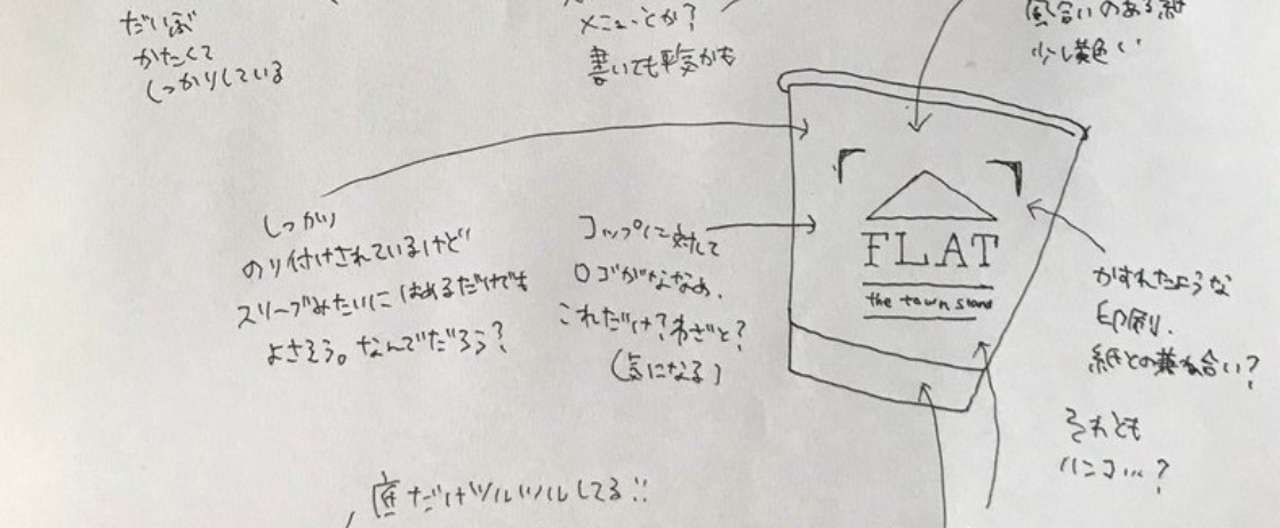 だいぶ
かたくて
しっかりしている
メニューとか?
書いても平気かも
風合いのある紙
少し黄色い
しっかり
のり付けされているけど
スリーブみたいにはめるだけでも
よさそう。なんでだろう?
コップに対して
ロゴがななめ.
これだけ?わざと?
(気になる)
FLAT
the town stand
かすれたような
印刷.
紙との兼ね合い?
それとも
ハンコ…?
底だけツルツルしてる!!